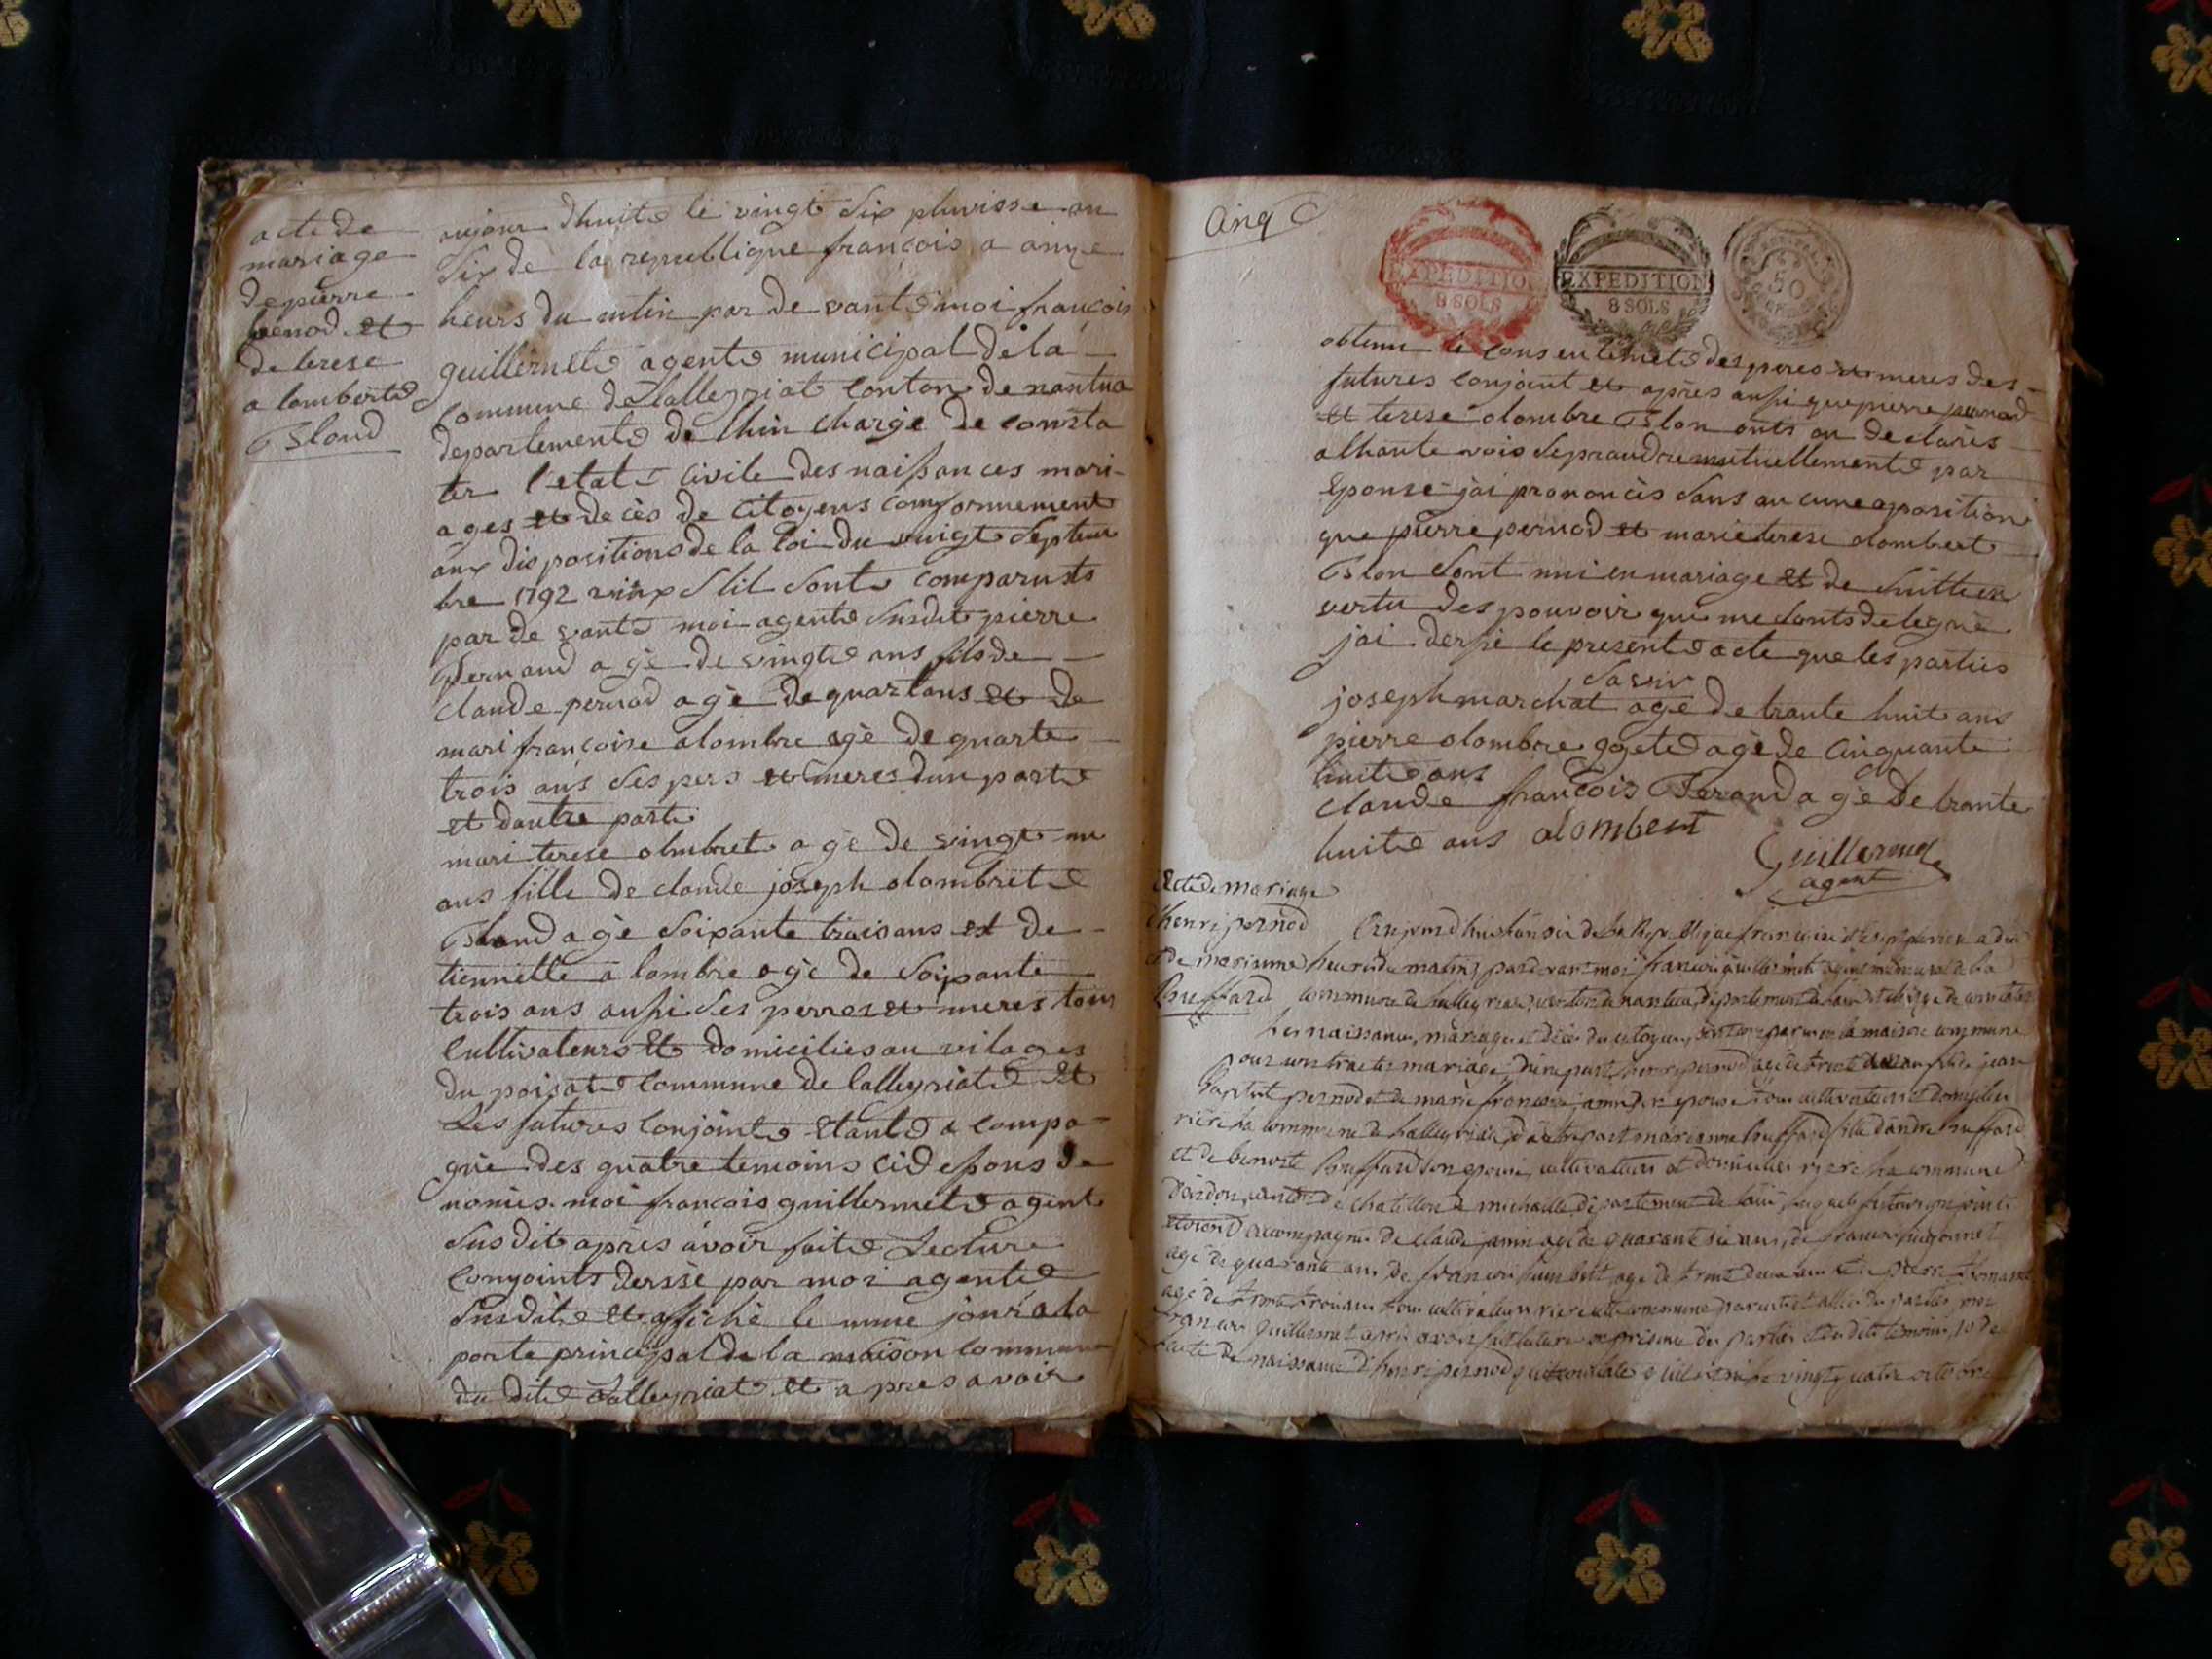 acte de
mariage
de pierre
pernod et
de terese
alomberte
Blond
aujour dhuite le vingt six pluvisse an
six de la republique francois a onze
heurs du mtin par de vante moi francois
guillermete agente municipal de la
commune de lalleyriat conton de nantua
departemente de lhin charge de consta
ter l'etat civile des naissances mari-
ages et decès de citoyens comformement
aux dispositions de la loi du vingt septem
bre 1792 vieux stil sonte comparusts
par de vante moi agente susdit pierre
Pernaud agè de vingte ans fils de
claude pernod agè de quartans et de
mari francoise alombre agè de quarte
trois ans ses pers et meres dun parte
et dautre parti
mari terese olmbret agè de vingt un
ans fille de claude joseph alombrete
Bland agè soixante trois ans et de
tiennette a lombre agè de soixante
trois ans aussi ses perres et meres tous
cultivateurs et domiciliès au vilages
du poisate commune de lalleyriate et
Les futures conjointe etante a compa-
gnie des quatre temoins cidessous de
nomiès moi francois guillermete agent
susdit après avoir faite Lecture
conyoints derssè par moi agente
susdite et affichè le mme jour a la
porte principal de la maison commune
du dite Lalleyriat et apres avoir
Cinq
EXPEDITION
8 SOLS
EXPEDITION
8 SOLS
50
obtenu le consentemete des peres et meres des
futures conjoint et après aussi que pierre pernod
et terese olombre Blon onts an declarès
a lhaute vois se prandre mutuellemente par
Eponse jai prononcès sans aucune aposition
que pierre pernod et marie terese olombert
Blon sont uni en mariage et de suitte en
vertu des pouvoir qui me sonts delegué
jai dersse le presente acte que les parties
savoir
joseph marchat agè de trante huit ans
pierre olombre goyete agè de cinquante
huite ans
claude francois Perand agè de trante
huite ans alombert
Guillermet
agent
Acte de mariage
d'henri pernod
et de marianne
Buffard
heures du matin pardevant moi francois guillermet agent municipal de la
commune de lalleyriat, canton de nantua, département de lain et chargé de constater
les naissances, mariages et décès des citoyens, sont comparu en la maison commune
pour contracter mariage, d'une part, henri pernod agé de trente ans fils de jean
Baptiste pernod et de marie francoise jamin son epouse tous cultivateurs et domicilies
riere la commune de lalleyriat, d'autre part marianne buffard fille dandre buffard
et de benoite Buffard son epouse, cultivateurs et domicilies riere la commune
canton de chatillon de michaille département de lain, lesquels futurs conjoints
accompagnes de claude jamin agé de quarante six ans, de francois
agé de quarante ans de francois humbert agé de trente deux ans et de pierre
agé de trente trois ans tous cultivateurs riere cette commune parents et allies des parties, moi
francois guillermet apres avoir fait lecture en presence des parties et des dits temoins, 1° de
lacte de naissance d'henri pernod qui constate quil est né le vingt quatre octobre